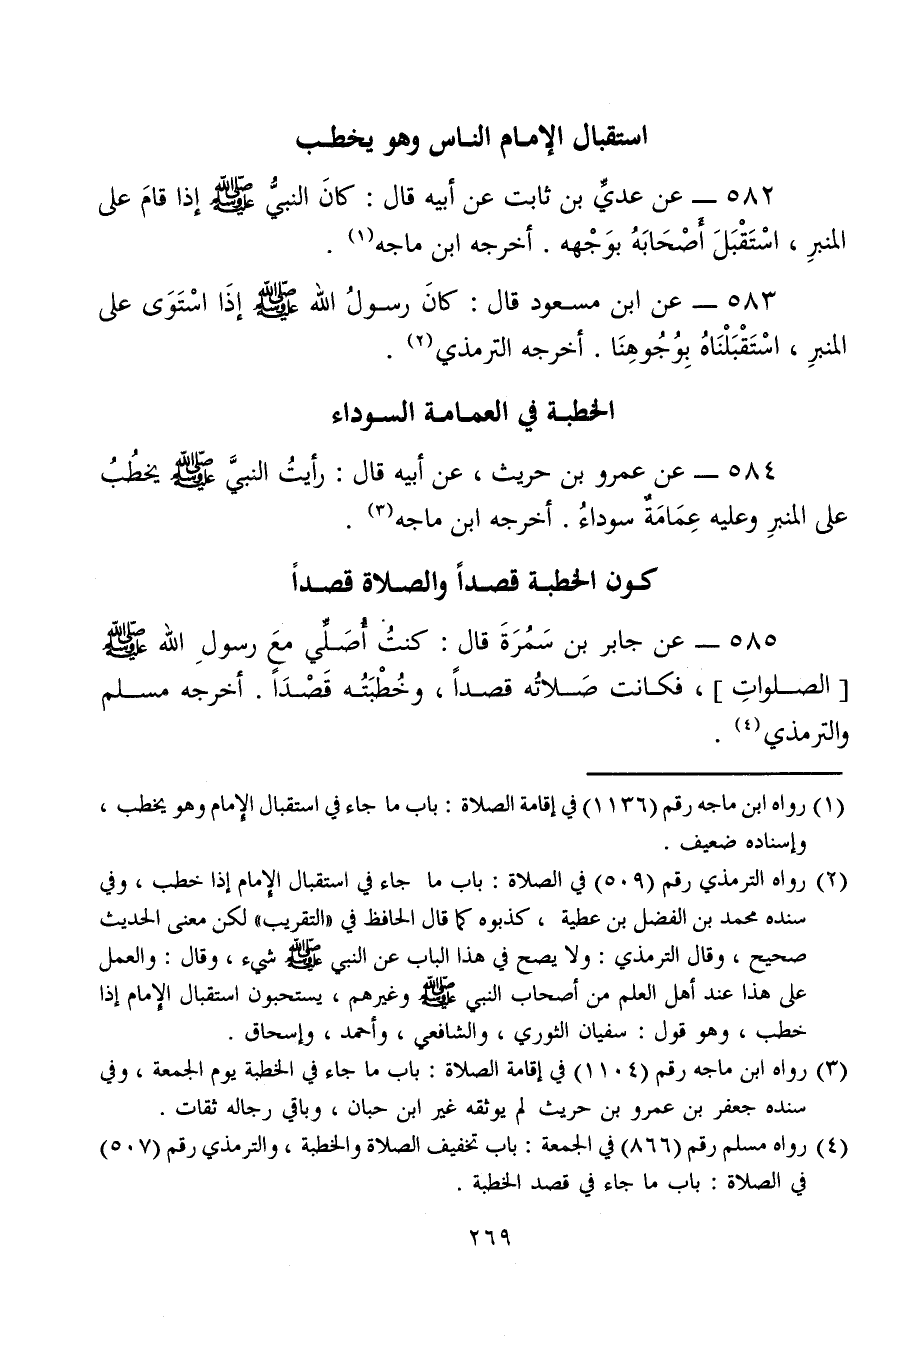 استقبال الإمام الناس وهو يخطب
٥٨٢ ــ عن عديٍّ بن ثابت عن أبيه قال : كانَ النبيُّ ﷺ إذا قامَ على
المنبرِ ، اسْتَقْبَلَ أَصْحَابَهُ بوَجْهه . أخرجه ابن ماجه(١) .
٥٨٣ ــ عن ابن مسعود قال : كانَ رسولُ الله ﷺ إذَا اسْتَوَى على
المنبرِ ، اسْتَقْبَلْنَاهُ بِوُجُوهِنَا . أخرجه الترمذي(٢) .
الخطبة في العمامة السوداء
٥٨٤ ــ عن عمرو بن حريث ، عن أبيه قال : رأيتُ النبيَّ ﷺ يخطُبُ
على المنبرِ وعليه عِمَامَةٌ سوداءُ . أخرجه ابن ماجه(٣) .
كون الخطبة قصداً والصلاة قصداً
٥٨٥ ــ عن جابر بن سَمُرَةَ قال : كنتُ أُصَلِّي معَ رسولِ الله ﷺ
[ الصلواتِ ] ، فكانت صَلاتُه قصداً ، وخُطْبَتُه قَصْدَاً . أخرجه مسلم
والترمذي(٤) .
(١) رواه ابن ماجه رقم (١١٣٦) في إقامة الصلاة : باب ما جاء في استقبال الإمام وهو يخطب ،
وإسناده ضعيف .
(٢) رواه الترمذي رقم (٥٠٩) في الصلاة : باب ما جاء في استقبال الإمام إذا خطب ، وفي
سنده محمد بن الفضل بن عطية ، كذبوه كما قال الحافظ في «التقريب» لكن معنى الحديث
صحيح ، وقال الترمذي : ولا يصح في هذا الباب عن النبي ﷺ شيء ، وقال : والعمل
على هذا عند أهل العلم من أصحاب النبي ﷺ وغيرهم ، يستحبون استقبال الإمام إذا
خطب ، وهو قول : سفيان الثوري ، والشافعي ، وأحمد ، وإسحاق .
(٣) رواه ابن ماجه رقم (١١٠٤) في إقامة الصلاة : باب ما جاء في الخطبة يوم الجمعة ، وفي
سنده جعفر بن عمرو بن حريث لم يوثقه غير ابن حبان ، وباقي رجاله ثقات .
(٤) رواه مسلم رقم (٨٦٦) في الجمعة : باب تخفيف الصلاة والخطبة ، والترمذي رقم (٥٠٧)
في الصلاة : باب ما جاء في قصد الخطبة .
٢٦٩